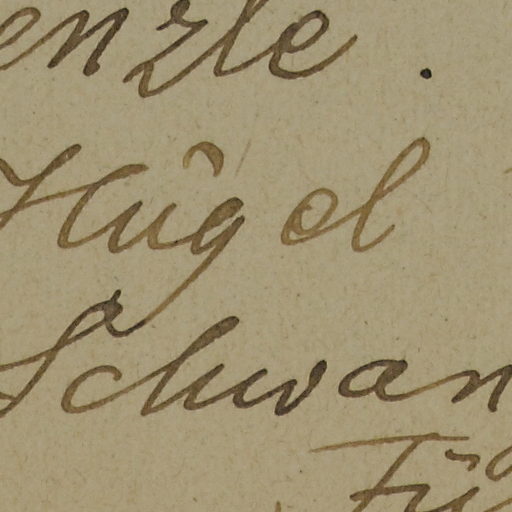 enzle.
Hügel
Schwan
Fü